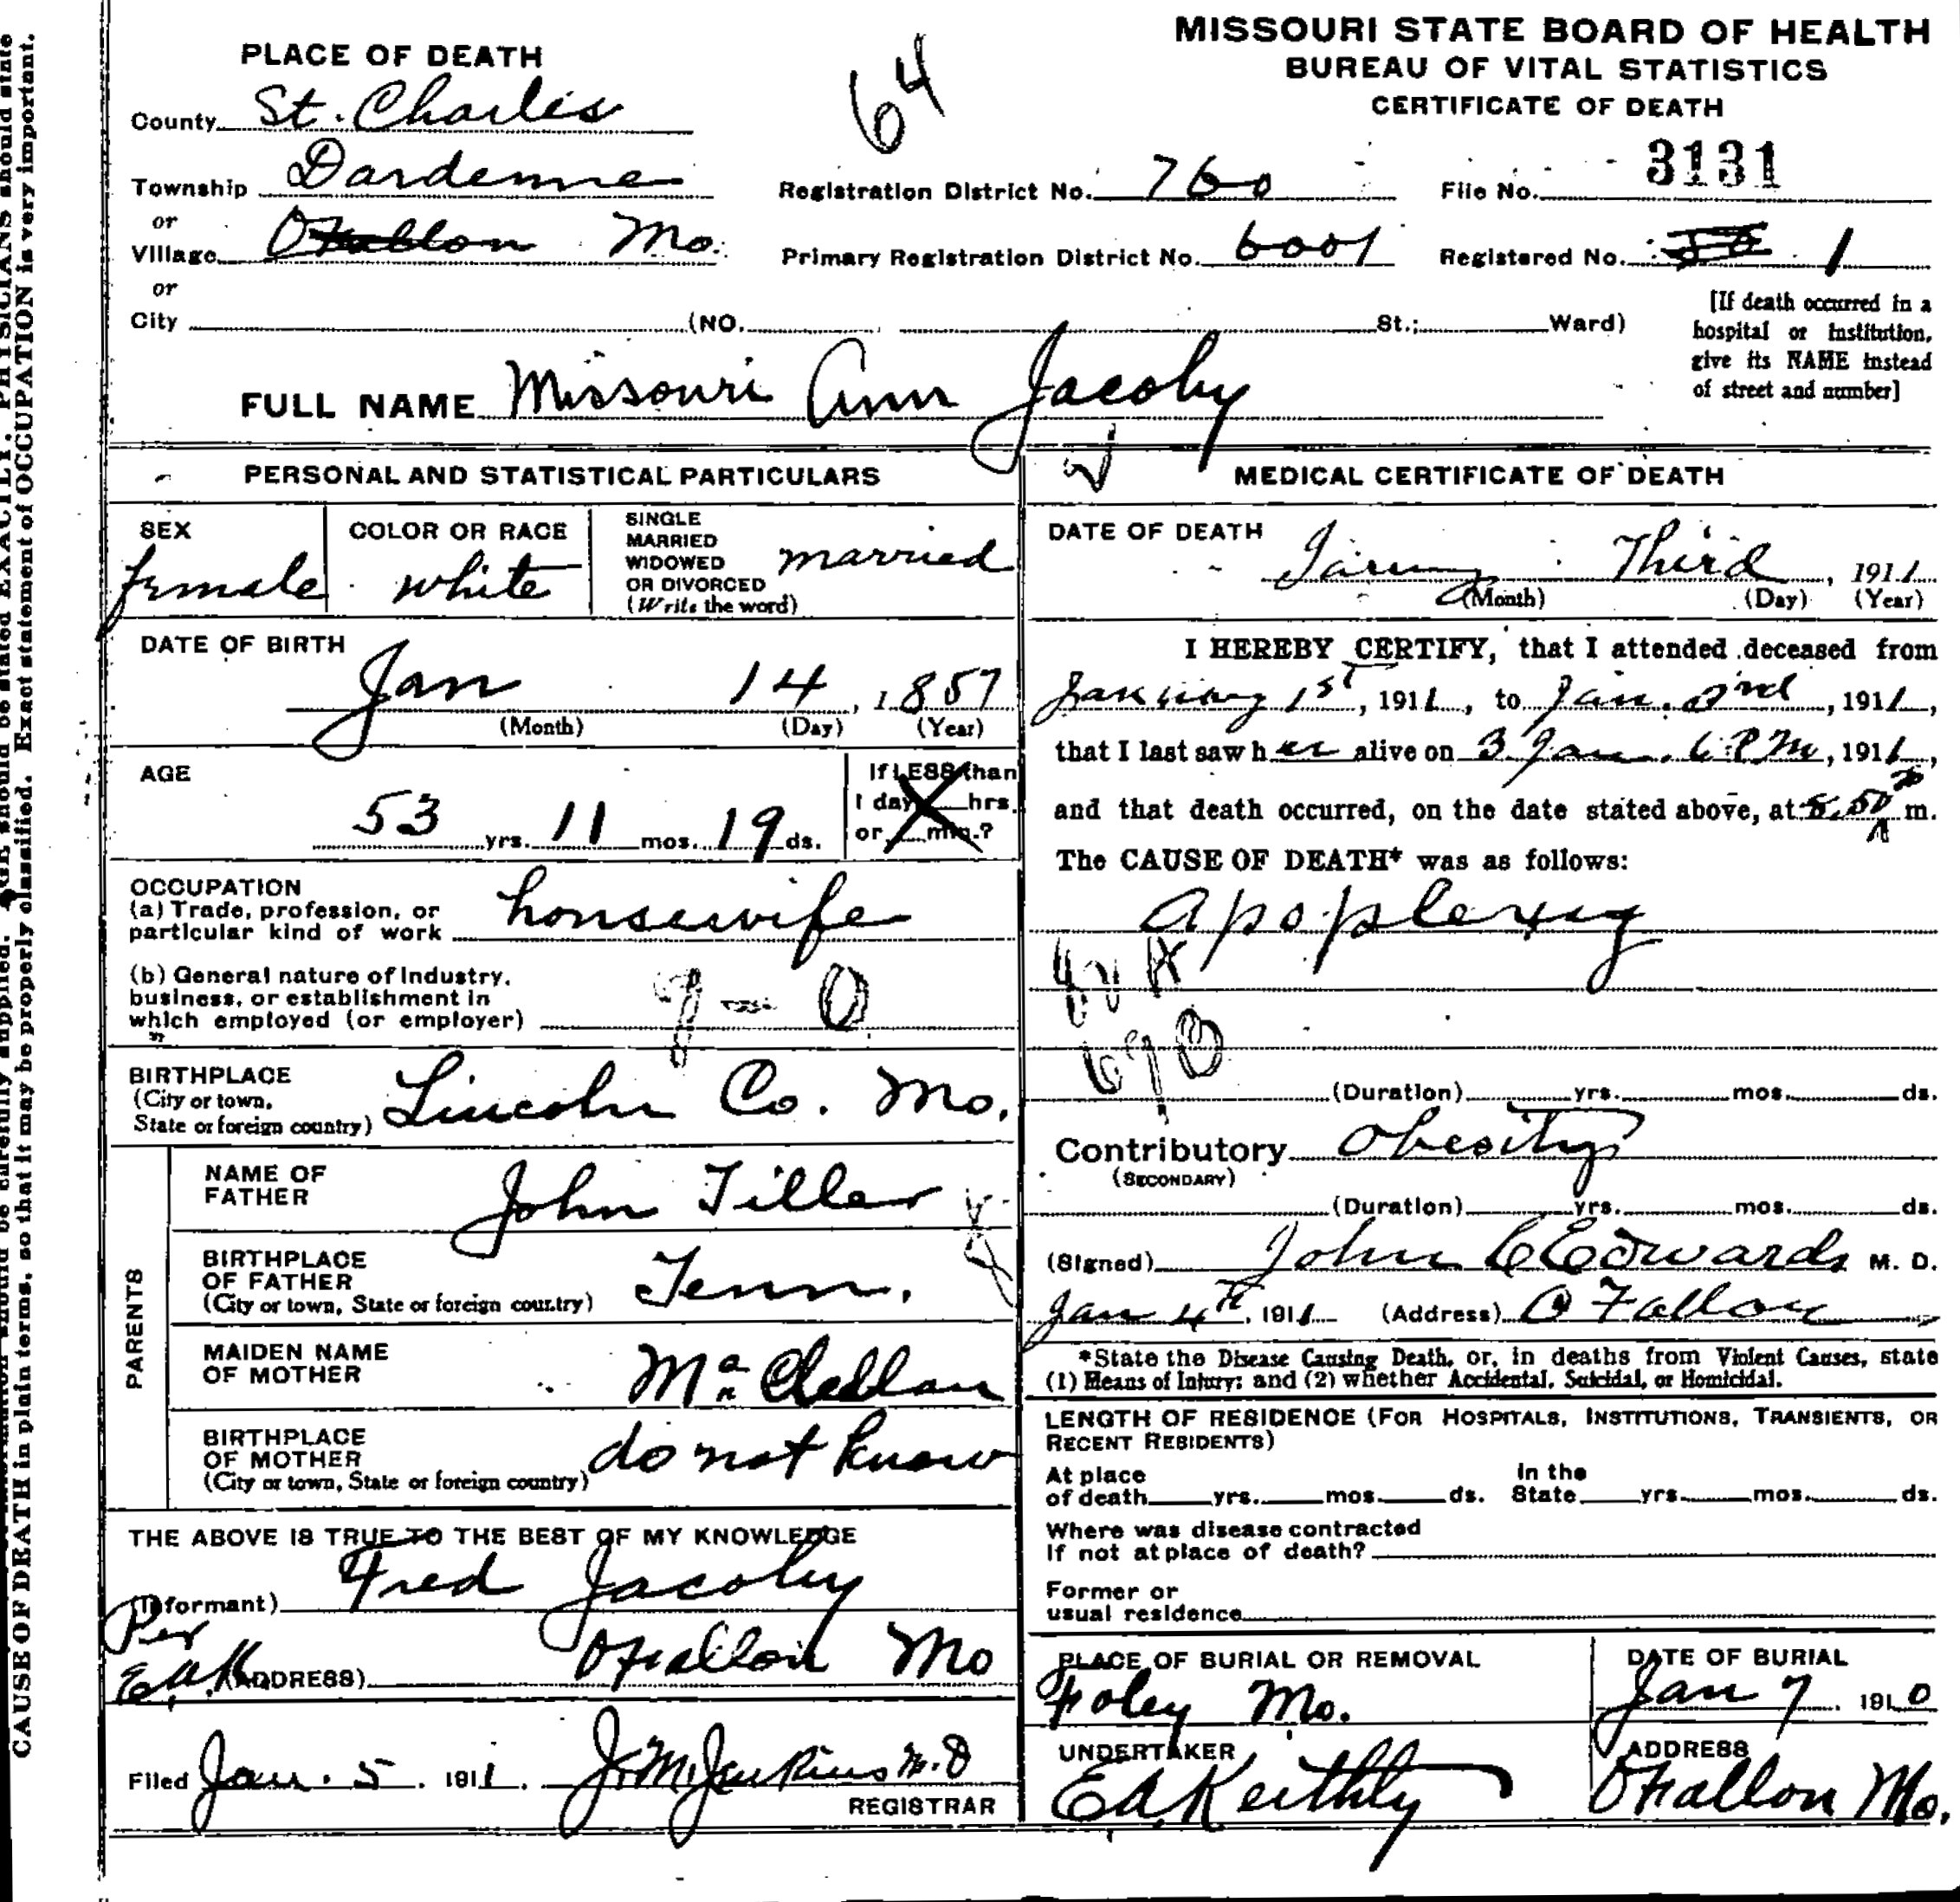 MISSOURI STATE BOARD OF HEALTH
BUREAU OF VITAL STATISTICS
CERTIFICATE OF DEATH
PLACE OF DEATH
64
County St. Charles
Township Dardenne
or
Village OFallon Mo.
or
City (NO. St.; Ward)
Registration District No. 760
File No. 3131
Primary Registration District No. 6001
Registered No. 1
[If death occurred in a
hospital or institution,
give its NAME instead
of street and number]
FULL NAME Missouri Ann Jacoby
PERSONAL AND STATISTICAL PARTICULARS
SEX
female
COLOR OR RACE
white
SINGLE
MARRIED
WIDOWED
OR DIVORCED
(Write the word)
married
DATE OF BIRTH
Jan 14, 1857
(Month) (Day) (Year)
AGE
53 yrs. 11 mos. 19 ds.
If LESS than
1 day hrs.
or min.?
OCCUPATION
(a) Trade, profession, or
particular kind of work housewife
(b) General nature of Industry,
business, or establishment in
which employed (or employer)
9-0
BIRTHPLACE
(City or town,
State or foreign country) Lincoln Co. Mo.
PARENTS
NAME OF
FATHER
John Tiller
BIRTHPLACE
OF FATHER
(City or town, State or foreign country) Tenn.
MAIDEN NAME
OF MOTHER
Mc Clellan
BIRTHPLACE
OF MOTHER
(City or town, State or foreign country) do not know
THE ABOVE IS TRUE TO THE BEST OF MY KNOWLEDGE
(Informant) Fred Jacoby
Per
E.A.K.
(ADDRESS) OFallon Mo
Filed Jan. 5. 1911. J.M. Jenkins M.D
REGISTRAR
MEDICAL CERTIFICATE OF DEATH
DATE OF DEATH
January Third, 1911
(Month) (Day) (Year)
I HEREBY CERTIFY, that I attended deceased from
January 1st, 1911, to Jan. 3rd, 1911,
that I last saw her alive on 3 Jan. 6 P.M, 1911,
and that death occurred, on the date stated above, at 8.50 P m.
The CAUSE OF DEATH* was as follows:
Apoplexy
(Duration) yrs. mos. ds.
Contributory Obesity
(SECONDARY)
(Duration) yrs. mos. ds.
(Signed) John C Edwards M. D.
Jan 4th, 1911 (Address) O Fallon
*State the Disease Causing Death, or, in deaths from Violent Causes, state
(1) Means of Injury; and (2) whether Accidental, Suicidal, or Homicidal.
LENGTH OF RESIDENCE (FOR HOSPITALS, INSTITUTIONS, TRANSIENTS, OR
RECENT RESIDENTS)
At place
of death yrs. mos. ds.
In the
State yrs. mos. ds.
Where was disease contracted
If not at place of death?
Former or
usual residence
PLACE OF BURIAL OR REMOVAL
Foley Mo.
DATE OF BURIAL
Jan 7. 1910
UNDERTAKER
E.A. Keithly
ADDRESS
OFallon Mo.
CAUSE OF DEATH in plain terms, so that it may be properly classified. Exact statement of OCCUPATION is very important.